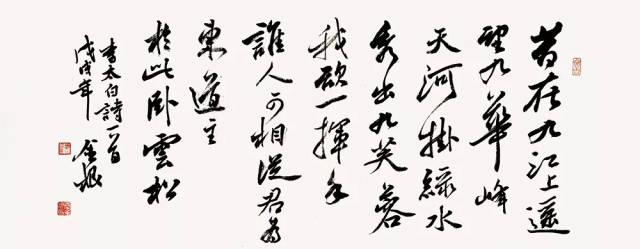 昔在九江上遥
望九華峰
天河掛緑水
秀出九芙蓉
我欲一揮手
誰人可相從君為
東道主
於此卧雲松
李太白詩一首
戊戌年 金